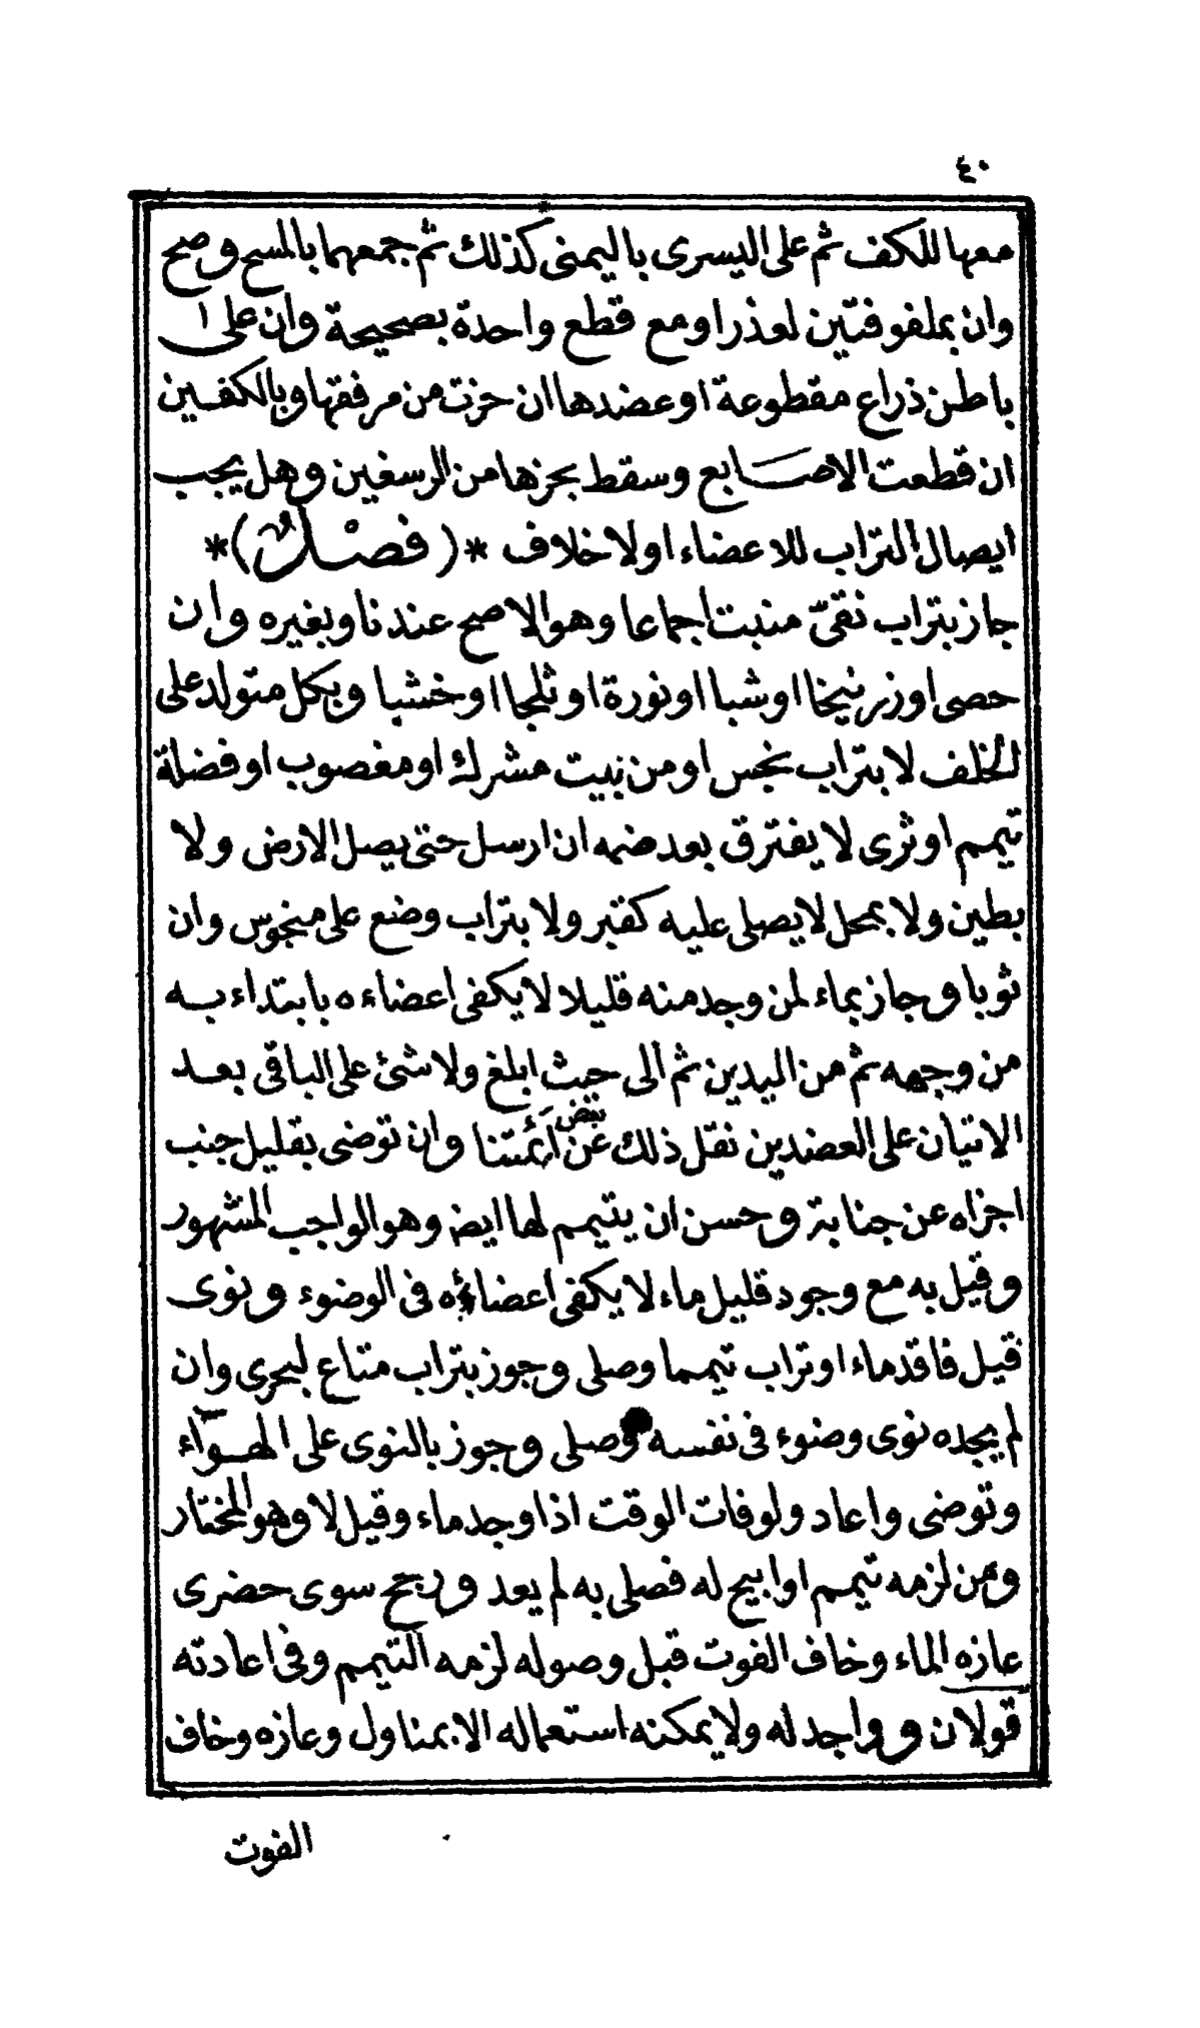 ٤٠
معها للكف ثم على اليسرى باليمنى كذلك ثم جمعهما بالمسح وصح
وان بملفوفتين لعذر او مع قطع واحدة بصحيحة وان على ا
باطن ذراع مقطوعة او عضدها ان حزت من مرفقها وبالكفين
ان قطعت الاصابع وسقط بحزها من الرسغين وهل يجب
ايصال التراب للاعضاء اولا خلاف *( فصل )*
جاز بتراب نقىّ منبت اجماعا وهو الاصح عندنا وبغيره وان
حصى او زرنيخا او شبا او نورة او ثلجا او خشبا وبكل متولد على
الخلف لا بتراب نجس او من بيت مشرك او مغصوب او فضلة
تيمم او ثرى لا يفترق بعد ضمه ان ارسل حتى يصل الارض ولا
بطين ولا بمحل لا يصلى عليه كقبر ولا بتراب وضع على منجوس وان
ثوبا وجاز بماء لمن وجد منه قليلا لا يكفى اعضاءه بابتداء به
من وجهه ثم من اليدين ثم الى حيث ابلغ ولا شئ على الباقى بعد
الاتيان على العضدين نقل ذلك عن بعض ائمتنا وان توضى بقليل جنب
اجزاه عن جنابة وحسن ان يتيمم لها ايض وهو الواجب المشهور
وقيل به مع وجود قليل ماء لا يكفى اعضائه فى الوضوء ونوى
قيل فاقد ماء او تراب تيمما وصلى وجوز بتراب متاع لبحرى وان
لم يجده نوى وضوء فى نفسه وصلى وجوز بالنوى على الهوآء
وتوضى واعاد ولو فات الوقت اذا وجد ماء وقيل لا وهو المختار
ومن لزمه تيمم او ابيح له فصلى به لم يعد ورجح سوى حضرى
عازه الماء وخاف الفوت قبل وصوله لزمه التيمم وفى اعادته
قولان و واجد له ولا يمكنه استعماله الا بمناول وعازه وخاف
الفوت